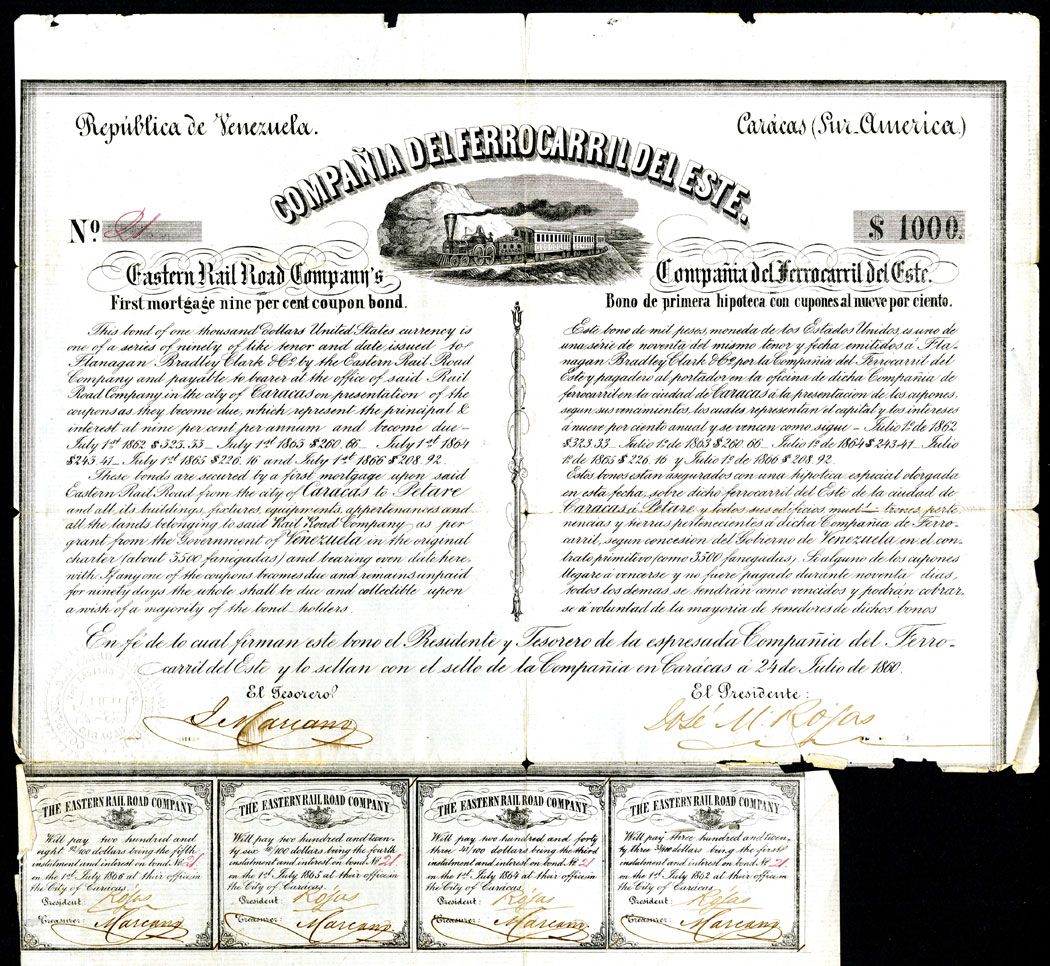 República de Venezuela.
Carácas (Sur-America)
COMPAÑIA DEL FERROCARRIL DEL ESTE.
Nº 21
$ 1000.
Eastern Rail Road Company's
First mortgage nine per cent coupon bond.
This bond of one thousand Dollars United States currency is
one of a series of ninety of like tenor and date, issued to
Flanagan Bradley Clark & Cº by the Eastern Rail Road
Company and payable to bearer at the office of said Rail
Road Company in the city of Caracas on presentation of the
coupons as they become due, which represent the principal &
interest at nine per cent per annum and become due—
July 1st 1862 $323.33— July 1st 1863 $260.66— July 1st 1864
$243.41— July 1st 1865 $226.16 and July 1st 1866 $208.92.
These bonds are secured by a first mortgage upon said
Eastern Rail Road from the city of Caracas to Petare
and all its buildings, fixtures, equipments, appertenances and
all the lands belonging to said Rail Road Company as per
grant from the Government of Venezuela in the original
charter (about 3500 fanegadas) and bearing even date here
with. If any one of the coupons becomes due and remains unpaid
for ninety days the whole shall be due and collectible upon
a wish of a majority of the bond holders.
Compañia del Ferrocarril del Este.
Bono de primera hipoteca con cupones al nueve por ciento.
Este bono de mil pesos, moneda de los Estados Unidos, es uno de
una serie de noventa del mismo tenor y fecha emitidos á Fla-
nagan Bradley Clark & Cº por la Compañia del Ferrocarril del
Este y pagadero al portador en la oficina de dicha Compañia de
ferrocarril en la ciudad de Caracas á la presentacion de los cupones,
segun sus vencimientos, los cuales representan el capital y los intereses
á nueve por ciento anual y se vencen como sigue— Julio 1º de 1862
$323.33— Julio 1º de 1863 $260.66— Julio 1º de 1864 $243.41— Julio
1º de 1865 $226.16 y Julio 1º de 1866 $208.92.
Estos bonos estan asegurados con una hipoteca especial otorgada
en esta fecha, sobre dicho ferrocarril del Este de la ciudad de
Caracas á Petare y todos sus edificios, bienes, perte
nencias y tierras pertenecientes á dicha Compañia de Ferro-
carril, segun concesion del Gobierno de Venezuela en el con-
trato primitivo (como 3500 fanegadas). Si alguno de los cupones
llegare á vencerse y no fuere pagado durante noventa dias,
todos los demas se tendrán como vencidos y podrán cobrar-
se á voluntad de la mayoria de tenedores de dichos bonos
En fé de lo cual firman este bono el Presidente y Tesorero de la espresada Compañia del Ferro-
carril del Este y lo sellan con el sello de la Compañia en Carácas á 24 de Julio de 1860.
El Tesorero:
Marcano
El Presidente:
José M. Rojas
THE EASTERN RAIL ROAD COMPANY
Will pay two hundred and
eight 92/100 dollars being the fifth
instalment and interest on bond Nº 21
on the 1st July 1866 at their office in
the City of Carácas.
President: Rójas
Treasurer: Marcano
THE EASTERN RAIL ROAD COMPANY
Will pay two hundred and twen-
ty six 16/100 dollars being the fourth
instalment and interest on bond Nº 21
on the 1st July 1865 at their office in
the City of Carácas.
President: Rójas
Treasurer: Marcano
THE EASTERN RAIL ROAD COMPANY
Will pay two hundred and forty
three 41/100 dollars being the third
instalment and interest on bond Nº 21
on the 1st July 1864 at their office in
the City of Carácas.
President: Rójas
Treasurer: Marcano
THE EASTERN RAIL ROAD COMPANY
Will pay three hundred and twen-
ty three 33/100 dollars being the first
instalment and interest on bond Nº 21
on the 1st July 1862 at their office in
the City of Carácas.
President: Rójas
Treasurer: Marcano